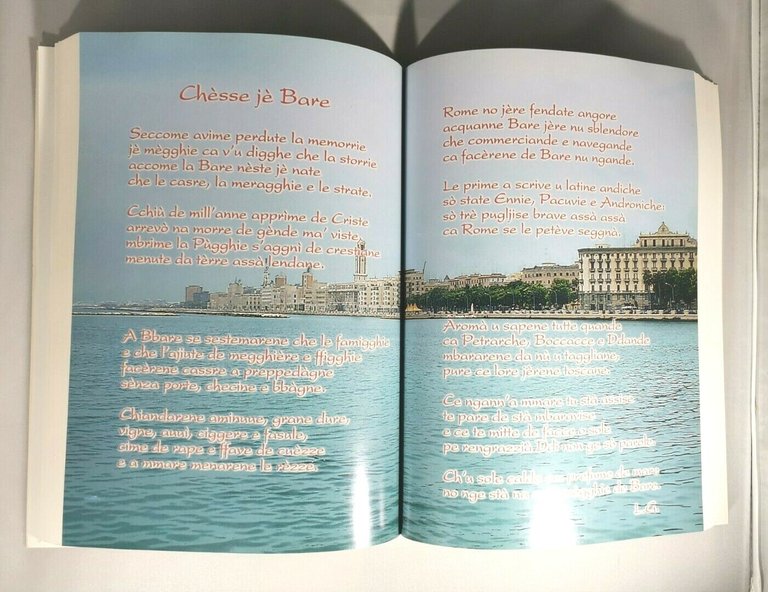 Chèsse jè Bare
Seccome avime perdute la memorrie
jè mègghie ca v'u digghe che la storrie
accome la Bare nèste jè nate
che le casre, la meragghie e le strate.
Cchiù de mill'anne apprime de Criste
arrevò na morre de gènde ma' viste,
mbrime la Pùgghie s'aggnì de crestiane
menute da tèrre assà lendane.
A Bbare se sestemarene che le famigghie
e che l'ajiute de negghière e ffigghie
facèrene cassre a preppedàgne
sènza porte, checine e bbàgne.
Chiandarene aminue, grane dure,
vigne, auuì, siggere e fasule,
cime de rape e ffave de cuèzze
e a mmare menarene le rèzze.
Rome no jère fendate angore
acquanne Bare jère nu sblendore
che commerciande e navegande
ca facèrene de Bare nu ngande.
Le prime a scrive u latine andiche
sò state Ennie, Pacuvie e Androniche:
sò trè pugljise brave assà assà
ca Rome se le petève seggnà.
Aromà u sapene tutte quande
ca Petrarche, Boccacce e Ddande
mbararene da nù u taggliane,
pure ce lore jèrene toscane.
Ce ngann'a mmare tu stà assise
te pare de stà mbaravise
e ce te mitte da facce o sole
pe rengrazzià Ddì non ge sò parole.
Ch'u sole calde profume de mare
no nge stà na de Bare.
L.G.